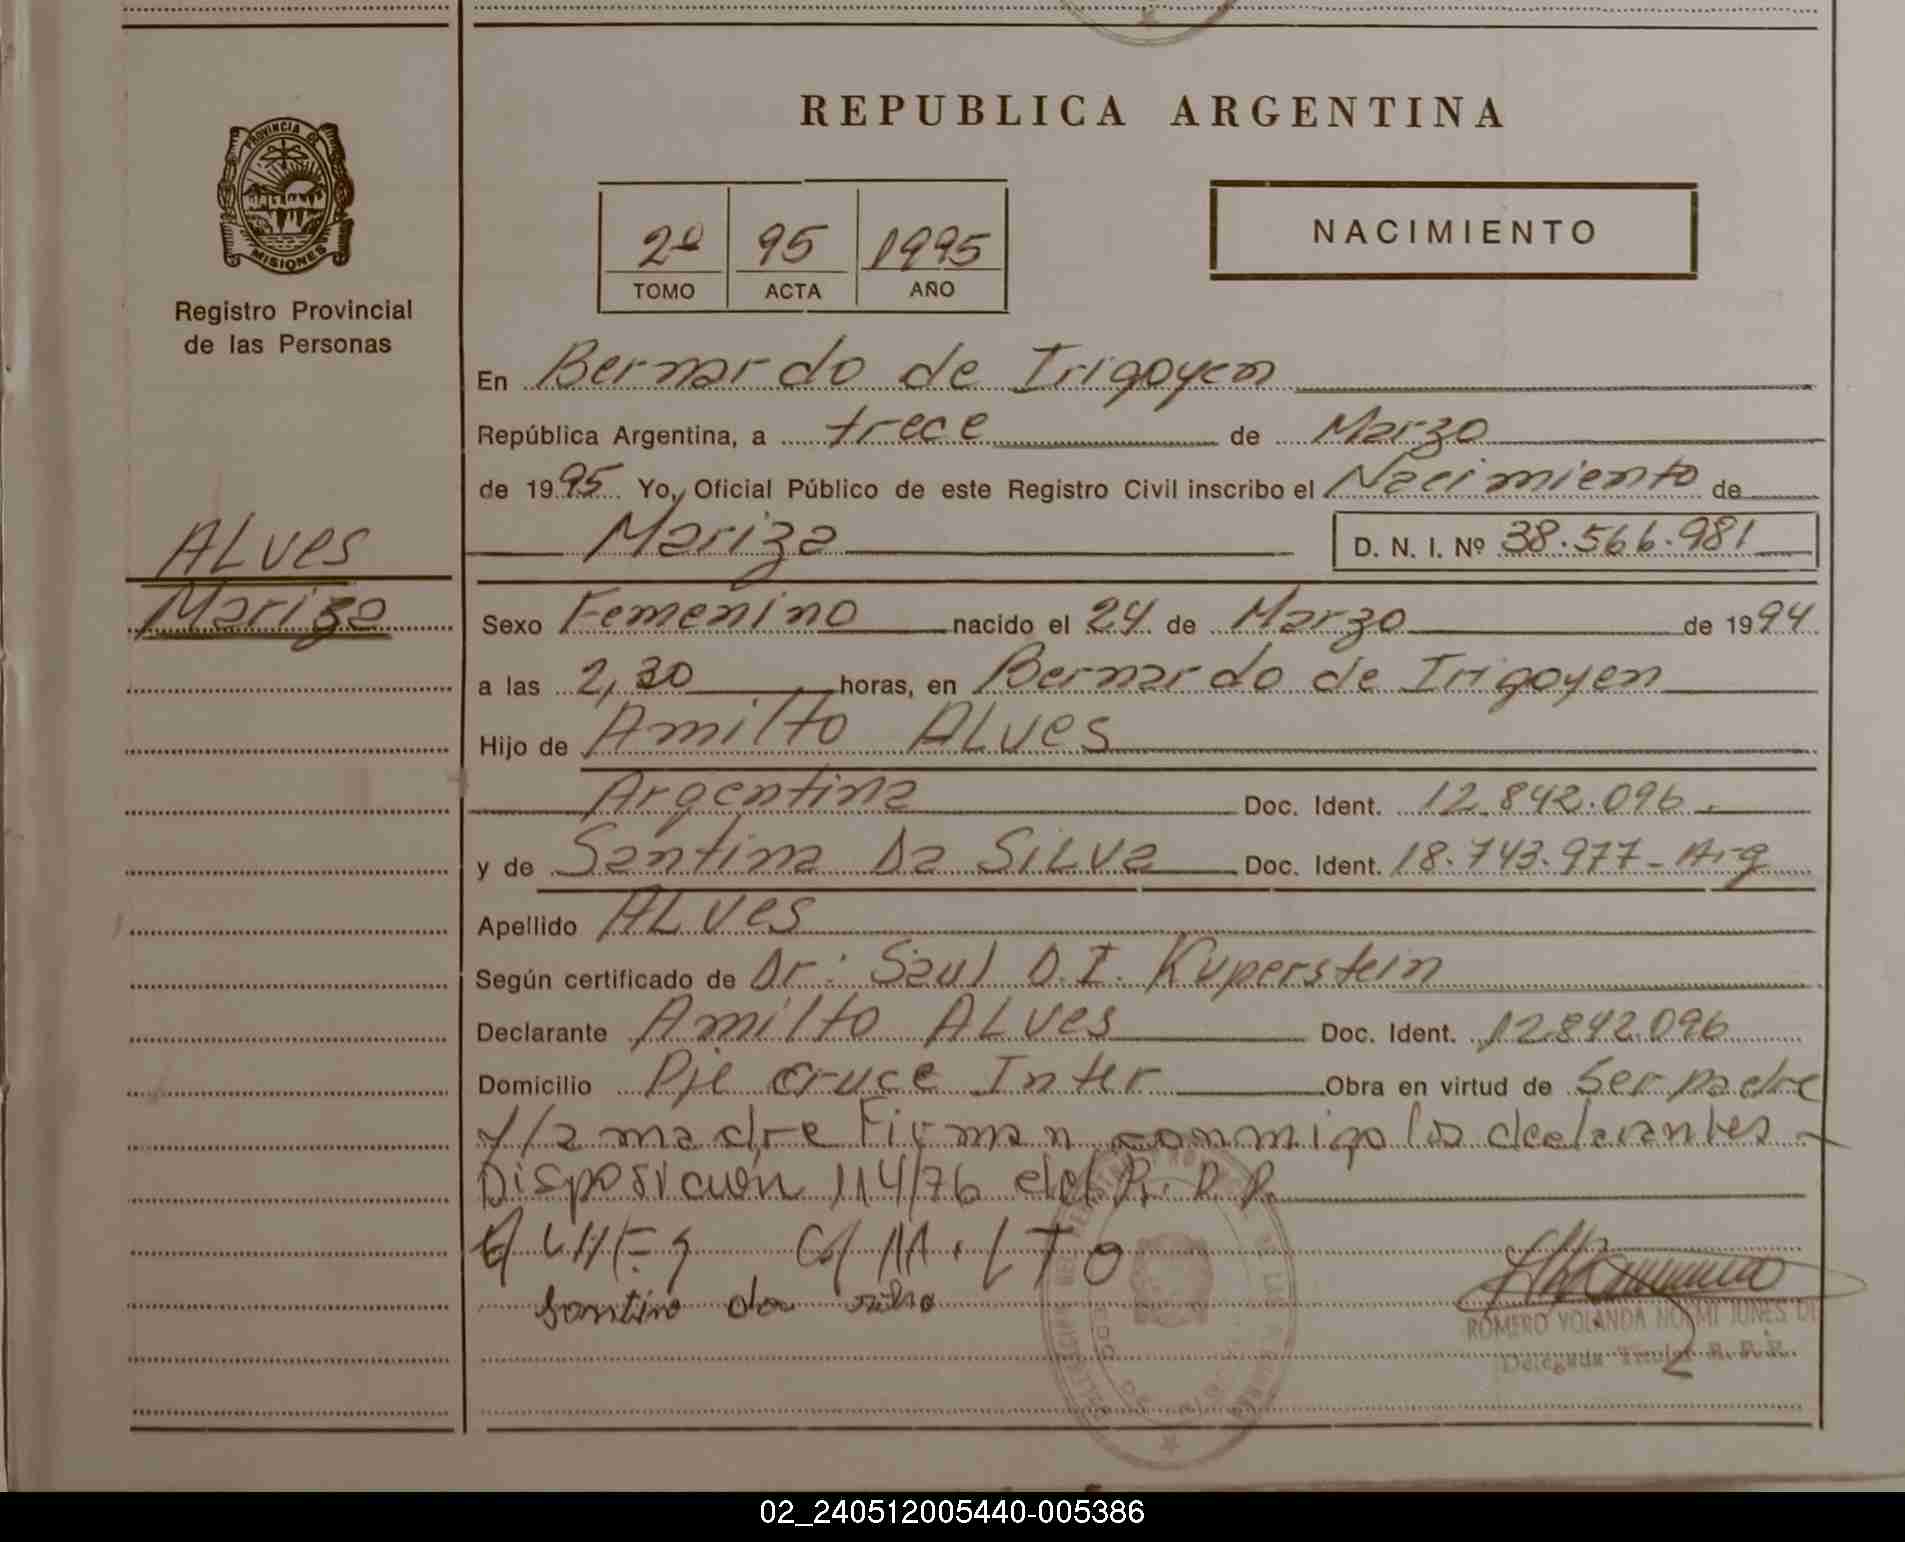 REPUBLICA ARGENTINA
PROVINCIA DE
MISIONES
Registro Provincial
de las Personas
2º 95 1995
TOMO ACTA AÑO
NACIMIENTO
En Bernardo de Irigoyen
República Argentina, a trece de Marzo
de 1995 Yo, Oficial Público de este Registro Civil inscribo el Nacimiento de
ALves
Mariza
Mariza D. N. I. Nº 38.566.981
Sexo Femenino nacido el 24 de Marzo de 1994
a las 2,30 horas, en Bernardo de Irigoyen
Hijo de Amilto ALves
Argentina Doc. Ident. 12.842.096.
y de Santina Da SiLva Doc. Ident. 18.743.977- Arg
Apellido ALves
Según certificado de Dr: Saul D.I. Kuperstein
Declarante Amilto ALves Doc. Ident. 12.842.096
Domicilio Pje cruce Inter Obra en virtud de Ser padre
y la madre Firman conmigo los declarantes -
Disposicion 114/76 del R. P. P.
ROMERO YOLANDA NOEMI JUNES DE
Delegada Titular R. P. P.
02_240512005440-005386